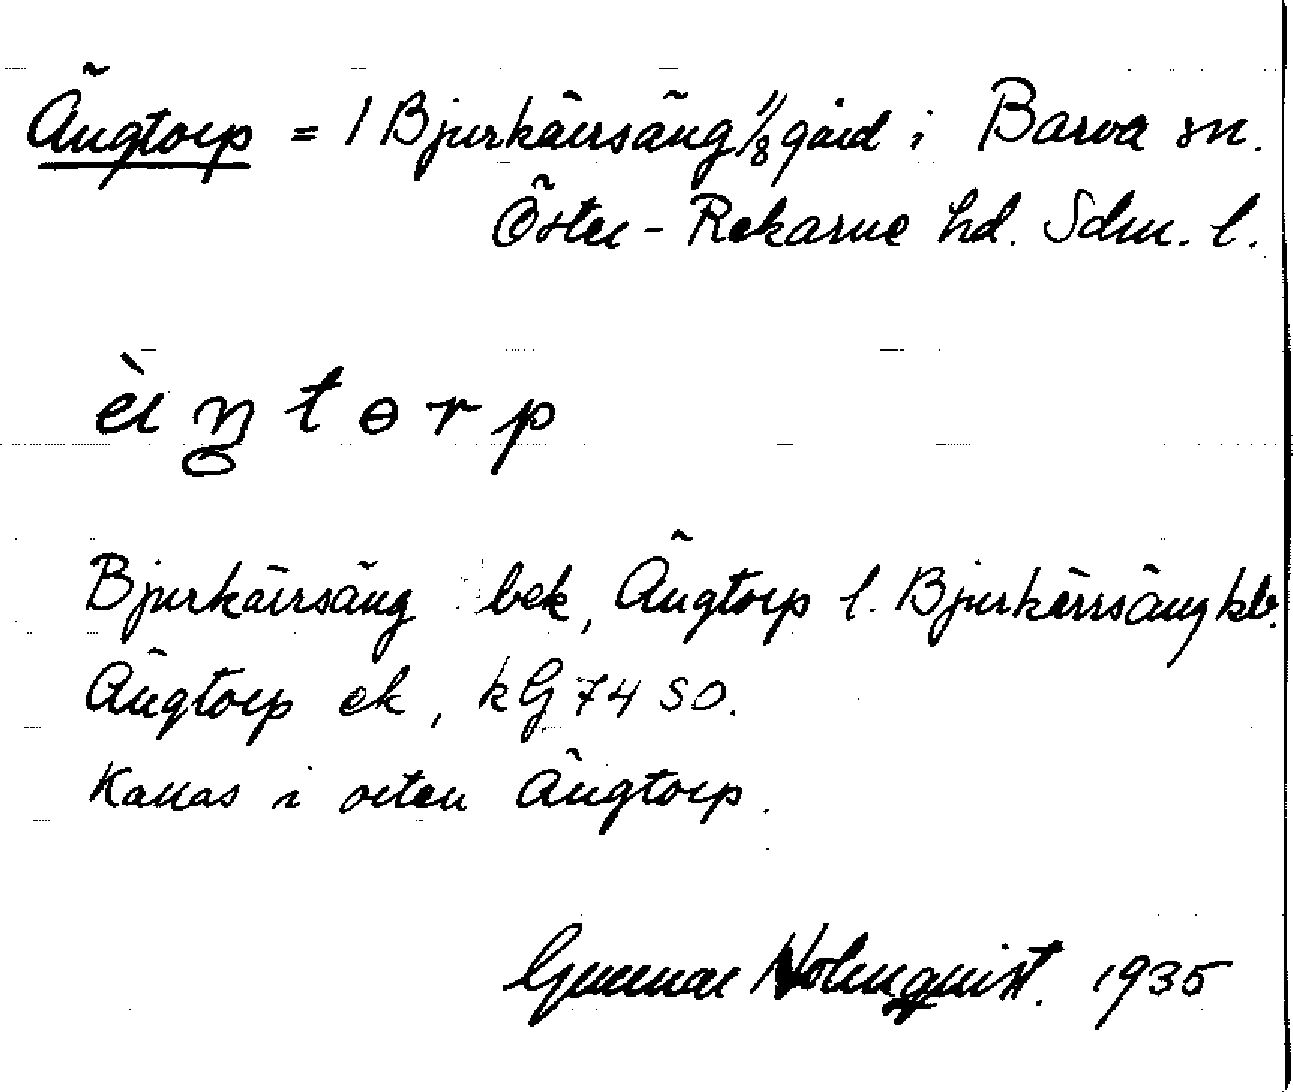 Ängtorp = / Bjurkärrsäng 1/8 gård i Barva sn.
Öster-Rekarne hd. Sdm. l.
ὲŋtɵrp
Bjurkärrsäng bek, Ängtorp l. Bjurkärrsäng kb.
Ängtorp ek, kG 74 SO.
Kallas i orten Ängtorp.
Gunnar Holmquist. 1935